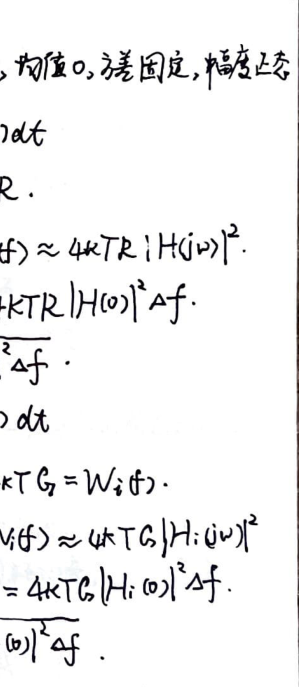 ,均值0,方差固定,幅度正态
)dt
R.
(f) ≈ 4kTR|H(jω)|².
4kTR|H(0)|²Δf.
²Δf.
) dt
kTG = Wᵢ(f).
Vᵢ(f) ≈ 4kTG|Hᵢ(jω)|²
= 4kTG|Hᵢ(0)|²Δf.
(0)|²Δf.